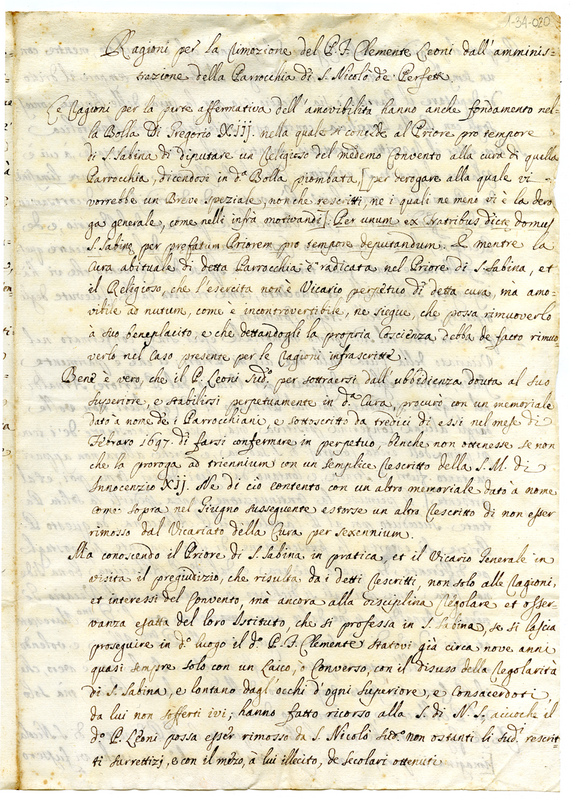 1-34-020
Ragioni per la rimozione del P. F. Clemente Leoni dall'amminis=
trazione della Parrocchia di S. Nicolò de' Perfetti
Le Ragioni per la parte affermativa dell'amovibilità hanno anche fondamento nel=
la Bolla di Gregorio XIIJ. nella quale si concede al Priore pro tempore
di S. Sabina di diputare un Religioso del medemo Convento alla cura di quella
Parrocchia, dicendosi in d.ª Bolla piombata, [per derogare alla quale vi
vorrebbe un Breve speziale, non che rescritti, ne i quali ne meno vi è la dero
ga generale, come nelli infra motivandi]: Per unum ex fratribus dictæ domus
S. Sabinæ per prefatum Priorem pro tempore deputandum. E mentre la
Cura abituale di detta Parrocchia è radicata nel Priore di S. Sabina, et
il Religioso, che l'esercita non è Vicario perpetuo di detta cura, ma amo=
vibile ad nutum, come è incontrovertibile, ne siegue, che possa rimuoverlo
à suo beneplacito, e che dettandogli la propria Coscienza, debba de facto rimuo=
verlo nel Caso presente per le Ragioni infrascritte.
Bene è vero, che il P. Leoni Sud.º per sottraersi dall'ubbidienza dovuta al suo
Superiore, e stabilirsi perpetuamente in d.ª Cura, procurò con un memoriale
dato à nome de i Parrocchiani, e sottoscritto da tredici di essi nel mese di
Febraro 1697. di farsi confermare in perpetuo, benche non ottenesse se non
che la proroga ad triennium con un semplice Rescritto della S. M. di
Innocenzio XIJ. Ne di ciò contento con un altro memoriale dato à nome
come sopra nel Giugno susseguente estorse un altro Rescritto di non esser
rimosso dal Vicariato della Cura per sexennium.
Ma conoscendo il Priore di S. Sabina in pratica, et il Vicario Generale in
visita il pregiudizio, che risulta da i detti Rescritti, non solo alle Ragioni,
et interessi del Convento, mà ancora alla disciplina Regolare et osser=
vanza esatta del loro Istituto, che si professa in S. Sabina, se si lascia
proseguire in d.º luogo il d.º P. F. Clemente statovi già circa nove anni
quasi sempre solo con un Laico, ò Converso, con il disuso della Regolarità
di S. Sabina, e lontano dagl'occhi d'ogni Superiore, e Consacerdoti
da lui non sofferti ivi; hanno fatto ricorso alla S. di N. S., acciochè il
d.º P. Leoni possa esser rimosso da S. Nicolò Sud.º non ostanti li Sud.i rescrit=
ti surrettizj, e con il mezo, à lui illecito, de secolari ottenuti.